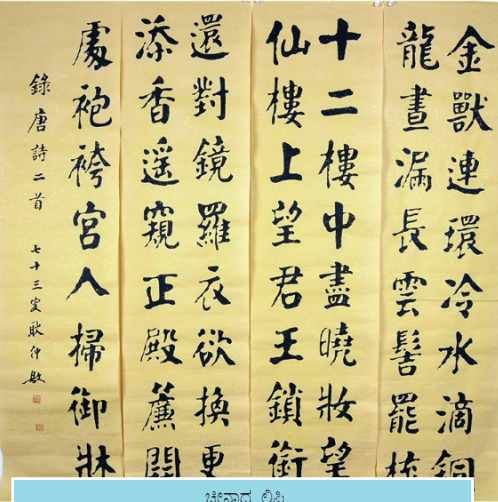 金獸連環冷水滴銅
龍晝漏長雲髻罷梳
十二樓中盡曉妝望
仙樓上望君王鎖銜
還對鏡羅衣欲換更
添香遥窺正殿簾開
處袍袴宮人掃御牀
錄唐詩二首 七十三叟耿仲敏
ಚೀನಾದ ಲಿಪಿ